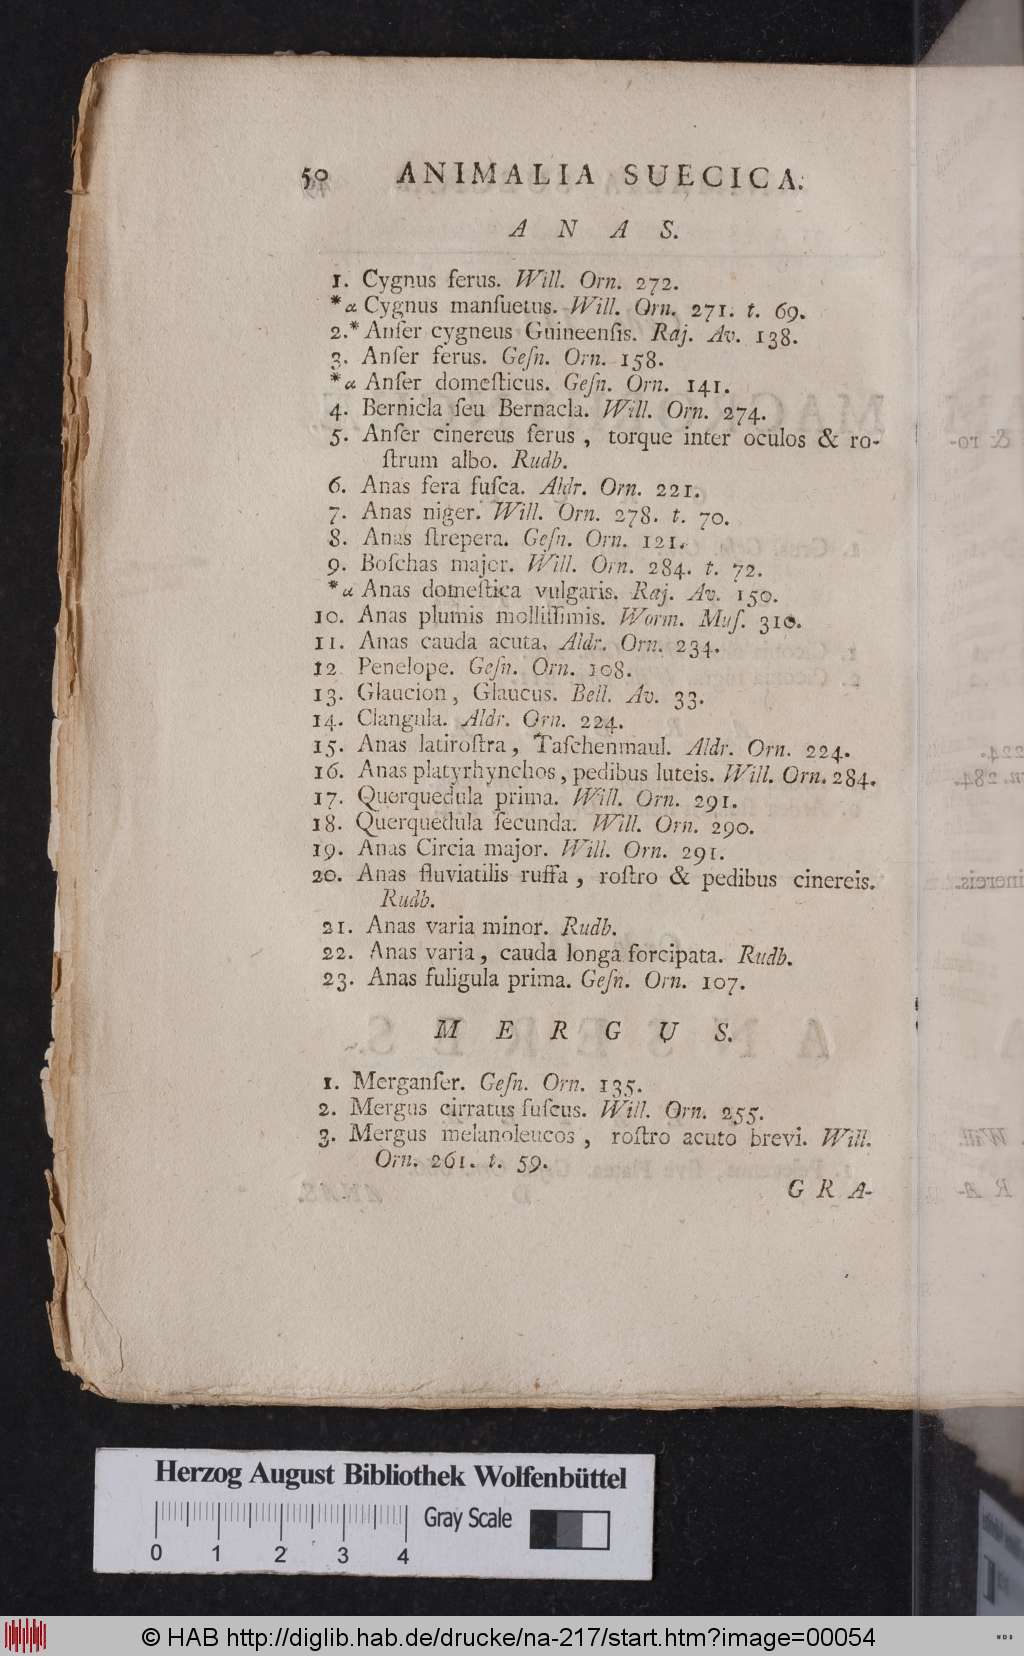 50 ANIMALIA SUECICA.
A N A S.
1. Cygnus ferus. Will. Orn. 272.
*α Cygnus manſuetus. Will. Orn. 271. t. 69.
2.* Anſer cygneus Guineenſis. Raj. Av. 138.
3. Anſer ferus. Geſn. Orn. 158.
*α Anſer domeſticus. Geſn. Orn. 141.
4. Bernicla ſeu Bernacla. Will. Orn. 274.
5. Anſer cinereus ferus, torque inter oculos & ro-
ſtrum albo. Rudb.
6. Anas fera fuſca. Aldr. Orn. 221.
7. Anas niger. Will. Orn. 278. t. 70.
8. Anas ſtrepera. Geſn. Orn. 121.
9. Boſchas major. Will. Orn. 284. t. 72.
*α Anas domeſtica vulgaris. Raj. Av. 150.
10. Anas plumis molliſſimis. Worm. Muſ. 310.
11. Anas cauda acuta. Aldr. Orn. 234.
12 Penelope. Geſn. Orn. 108.
13. Glaucion, Glaucus. Bell. Av. 33.
14. Clangula. Aldr. Orn. 224.
15. Anas latiroſtra, Taſchenmaul. Aldr. Orn. 224.
16. Anas platyrhynchos, pedibus luteis. Will. Orn. 284.
17. Querquedula prima. Will. Orn. 291.
18. Querquedula ſecunda. Will. Orn. 290.
19. Anas Circia major. Will. Orn. 291.
20. Anas fluviatilis ruffa, roſtro & pedibus cinereis.
Rudb.
21. Anas varia minor. Rudb.
22. Anas varia, cauda longa forcipata. Rudb.
23. Anas fuligula prima. Geſn. Orn. 107.
M E R G U S.
1. Merganſer. Geſn. Orn. 135.
2. Mergus cirratus fuſcus. Will. Orn. 255.
3. Mergus melanoleucos, roſtro acuto brevi. Will.
Orn. 261. t. 59.
G R A-
Herzog August Bibliothek Wolfenbüttel
Gray Scale
0 1 2 3 4
© HAB http://diglib.hab.de/drucke/na-217/start.htm?image=00054